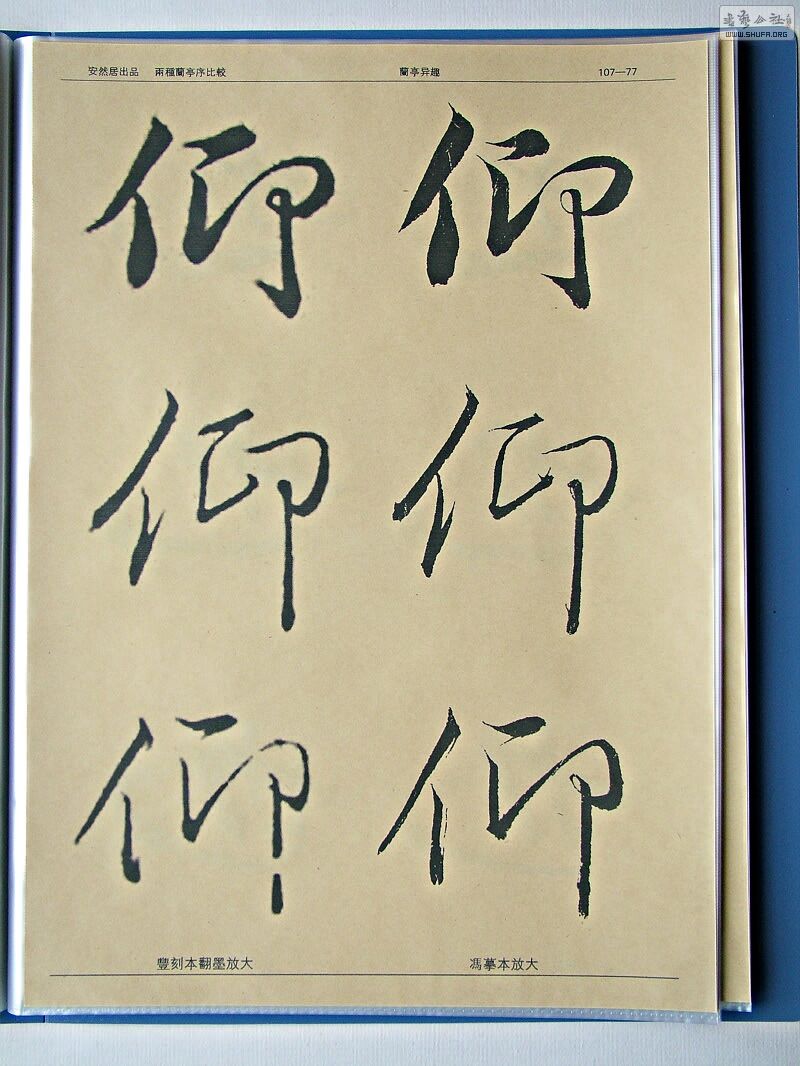 书艺公社
WWW.SHUFA.ORG
安然居出品 兩種蘭亭序比較 蘭亭异趣 107—77
仰 仰
仰 仰
仰 仰
豐刻本翻墨放大 馮摹本放大